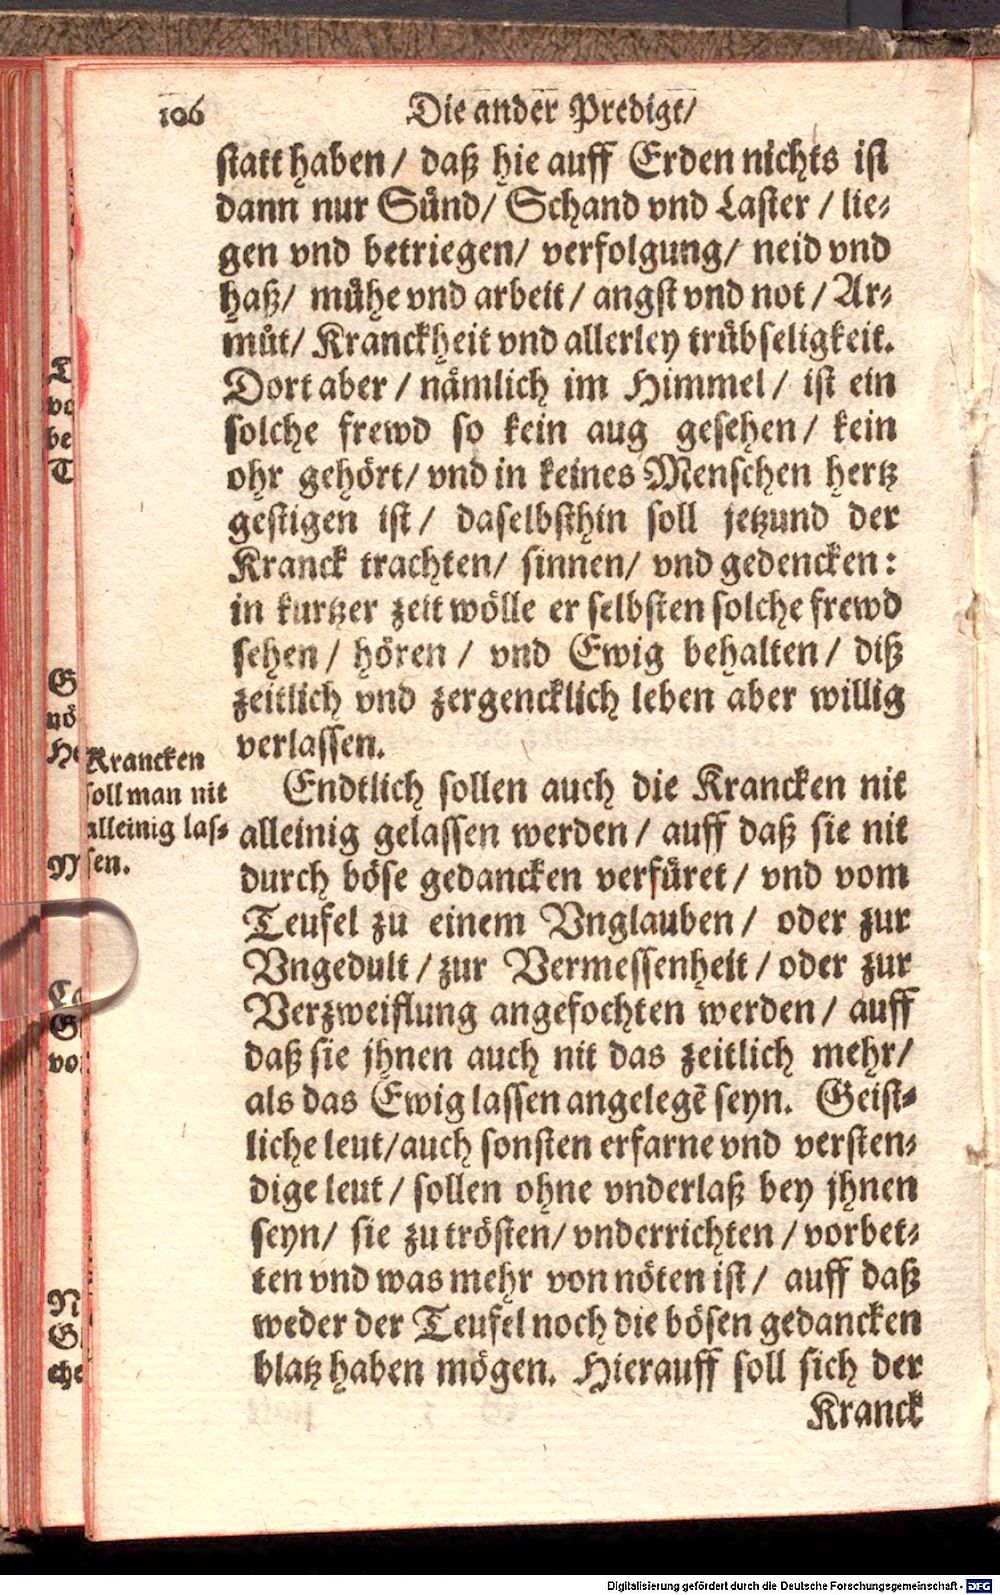 106
Die ander Predigt/
statt haben/ daß hie auff Erden nichts ist
dann nur Sünd/ Schand vnd Laster / lie-
gen vnd betriegen/ verfolgung/ neid vnd
haß/ mühe vnd arbeit/ angst vnd not / Ar-
můt/ Kranckheit vnd allerley trübseligkeit.
Dort aber / nämlich im Himmel/ ist ein
solche frewd so kein aug gesehen/ kein
ohr gehört/ vnd in keines Menschen hertz
gestigen ist/ daselbsthin soll jetzund der
Kranck trachten/ sinnen/ vnd gedencken:
in kurtzer zeit wölle er selbsten solche frewd
sehen/ hören / vnd Ewig behalten/ diß
zeitlich vnd zergencklich leben aber willig
verlassen.
Krancken
soll man nit
alleinig las-
sen.
Endtlich sollen auch die Krancken nit
alleinig gelassen werden/ auff daß sie nit
durch böse gedancken verfüret/ vnd vom
Teufel zu einem Vnglauben/ oder zur
Vngedult/ zur Vermessenheit/ oder zur
Verzweiflung angefochten werden/ auff
daß sie jhnen auch nit das zeitlich mehr/
als das Ewig lassen angelegẽ seyn. Geist-
liche leut/ auch sonsten erfarne vnd versten-
dige leut/ sollen ohne vnderlaß bey jhnen
seyn/ sie zu trösten/ vnderrichten/ vorbet-
ten vnd was mehr von nöten ist/ auff daß
weder der Teufel noch die bösen gedancken
blatz haben mögen. Hierauff soll sich der
Kranck
Digitalisierung gefördert durch die Deutsche Forschungsgemeinschaft - DFG